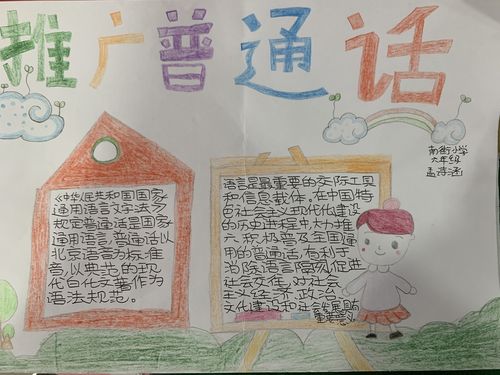 推广普通话
南街小学
六年级
孟诗涵
《中华人民共和国国家
通用语言文字法》
规定普通话是国家
通用语言,普通话以
北京语音为标准
音,以典范的现
代白化文著作为
语法规范。
语言是最重要的交际工具
和信息载体。在中国特
色社会主义现代化建设
的历史进程中,大力推
广、积极普及全国通
用的普通话,有利于
消除语言隔阂,促进
社会交往,对社会
主义经济、政治、
文化建设和社会发展具有
重要意义。